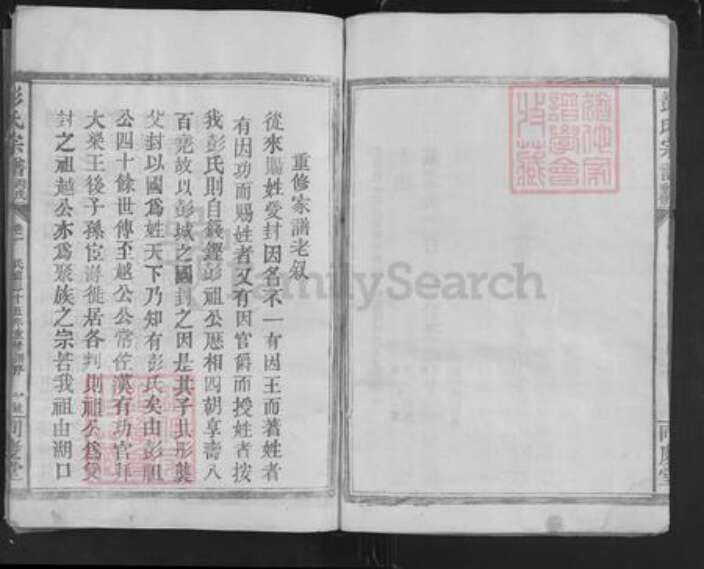 重修家譜老叙
從來賜姓受封因名不一有因王而著姓者
有因功而賜姓者又有因官爵而授姓者按
我彭氏則自籛鏗彭祖公歷相四朝享壽八
百堯故以彭城之國封之因是其子共形襲
父封以國爲姓天下乃知有彭氏矣由彭祖
公四十餘世傳至越公公常佐漢有功官拜
大梁王後子孫宦游徙居各判則祖公爲受
封之祖越公亦爲聚族之宗若我祖由湖口
彭氏宗譜
卷一
FamilySearch